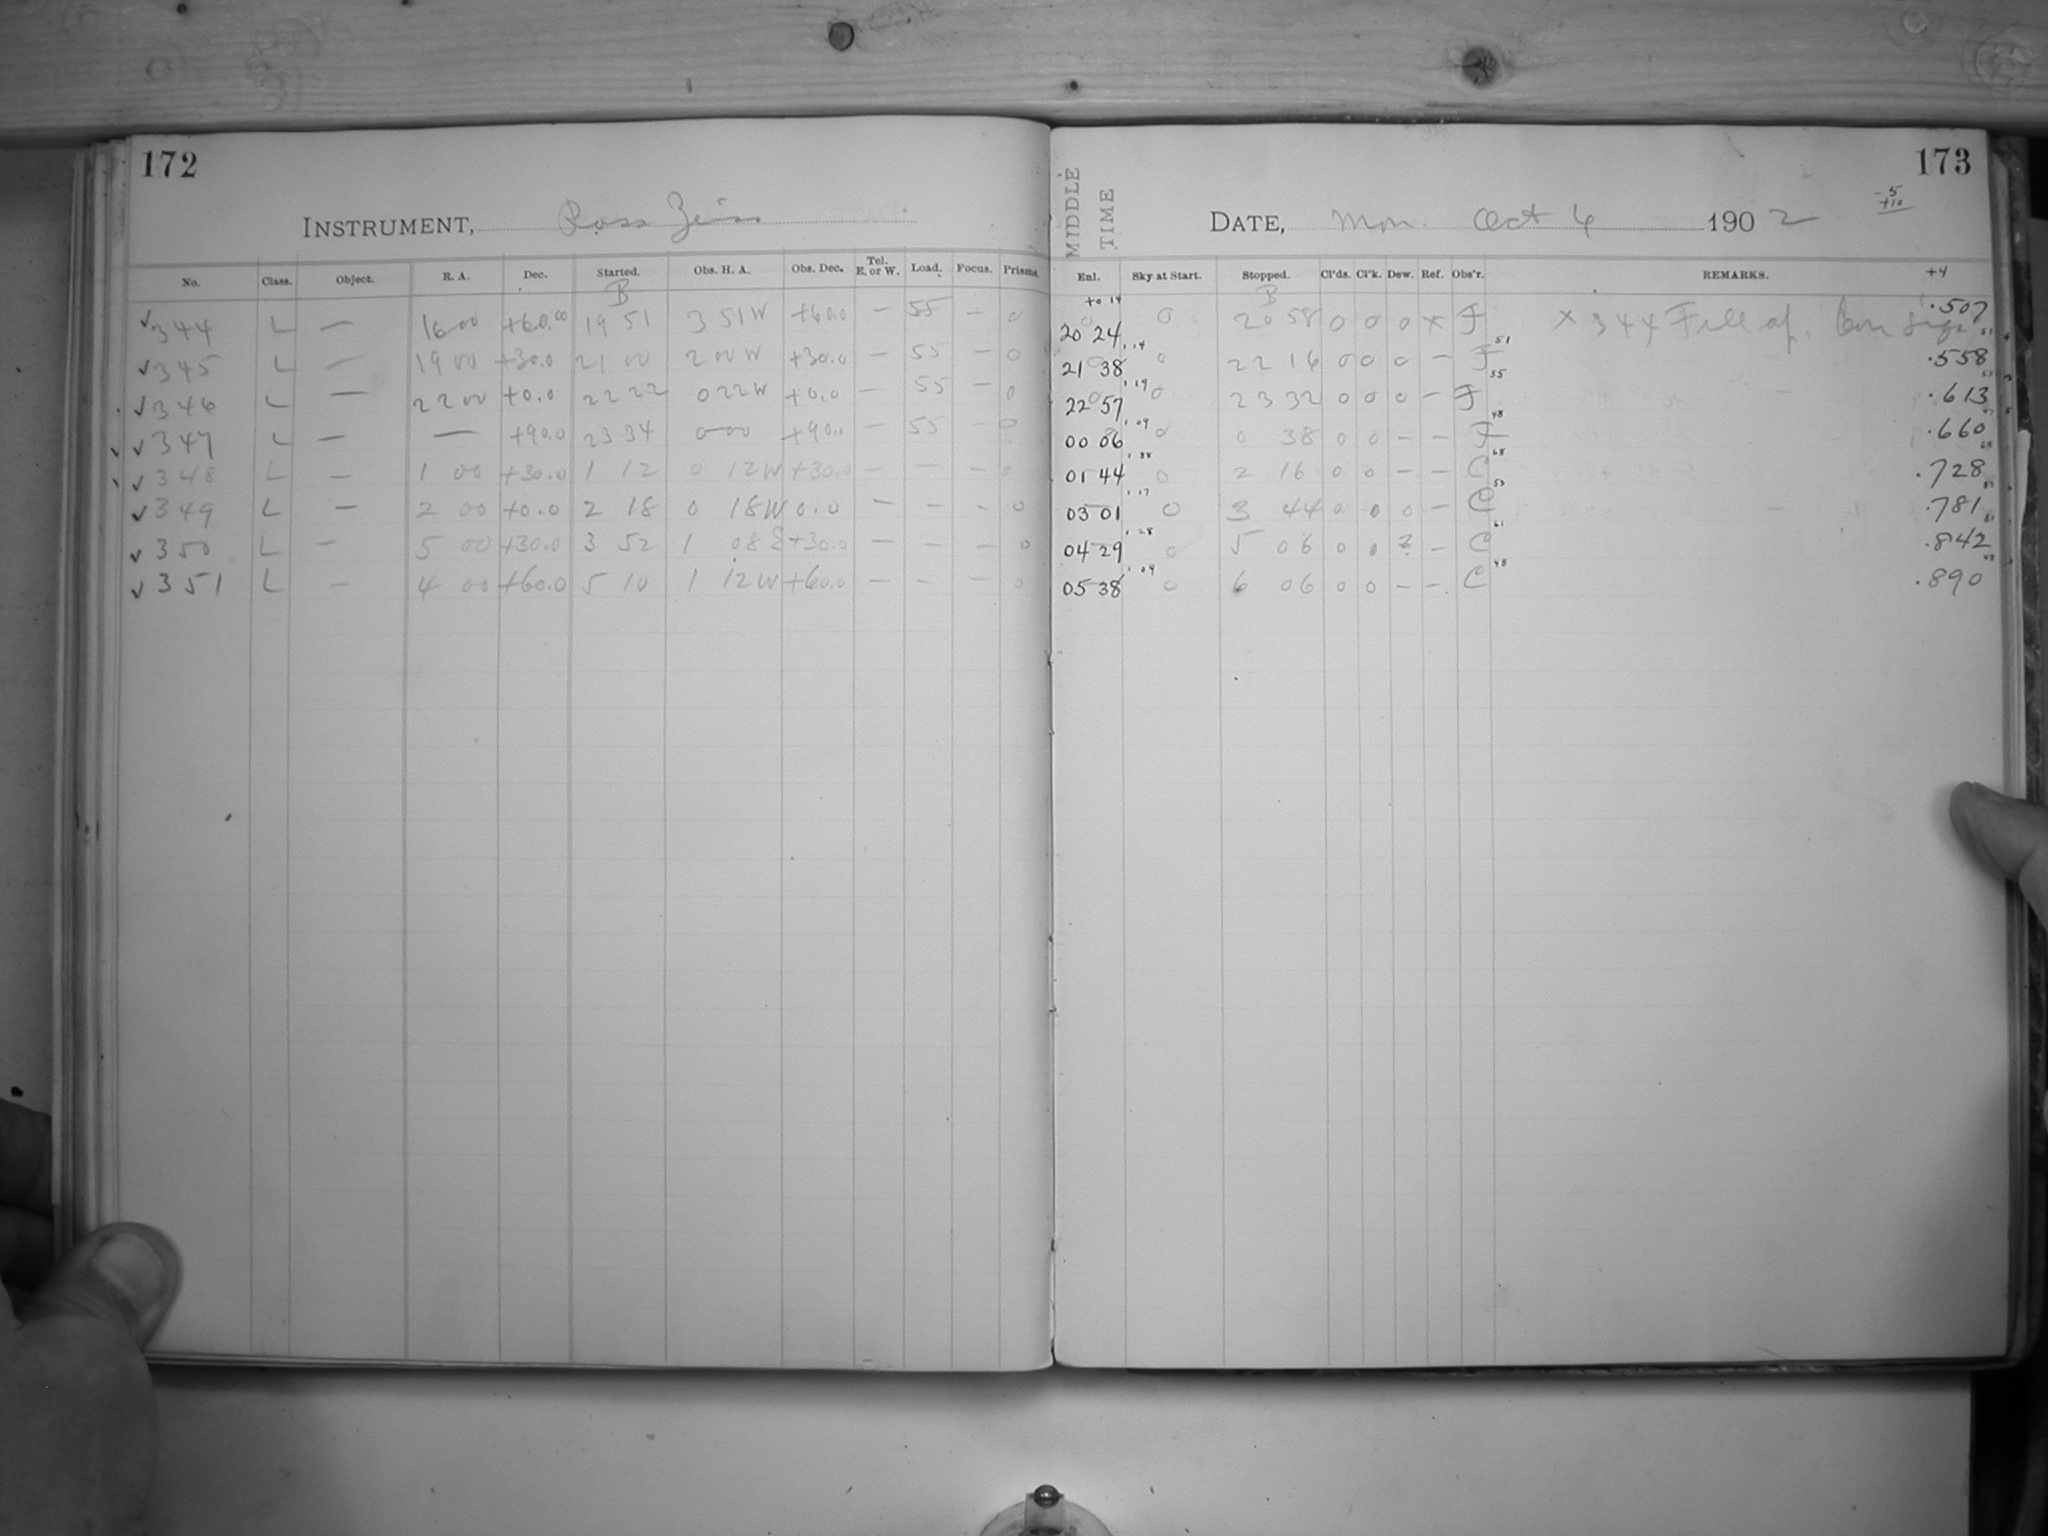 172
INSTRUMENT, Ross Zeiss
No. Class. Object. R. A. Dec. Started. Obs. H. A. Obs. Dec. Tel. E. or W. Load. Focus. Prisms.
B
✓344 L — 16 00 +60.00 19 51 3 51 W +60.0 — 55 — 0
✓345 L — 19 00 +30.0 21 00 2 00 W +30.0 — 55 — 0
✓346 L — 22 00 +0.0 22 22 0 22 W +0.0 — 55 — 0
✓✓347 L — — +90.0 23 34 0 00 +90.. — 55 — 0
✓348 L — 1 00 +30.0 1 12 0 12 W +30.0 — — — 0
✓349 L — 2 00 +0.0 2 18 0 18 W 0.0 — — — 0
✓350 L — 5 00 +30.0 3 52 1 08 E +30.0 — — — 0
✓351 L — 4 00 +60.0 5 10 1 12 W +60.0 — — — 0
173
-5
+10
MIDDLE
TIME
DATE, Mon. Oct 6 1902
Enl. Sky at Start. Stopped. Cl'ds. Cl'k. Dew. Ref. Obs'r. REMARKS. +4
+0 14 B
20 24 0 20 58 0 0 0 × F × 344 Full ap. .507
21 38 0 22 16 0 0 0 — F .558
22 57 0 23 32 0 0 0 — F .613
00 06 0 0 38 0 0 — — F .660
01 44 0 2 16 0 0 — — C .728
03 01 0 3 44 0 0 0 — C .781
04 29 0 5 06 0 0 2 — C .842
05 38 0 6 06 0 0 — — C .890